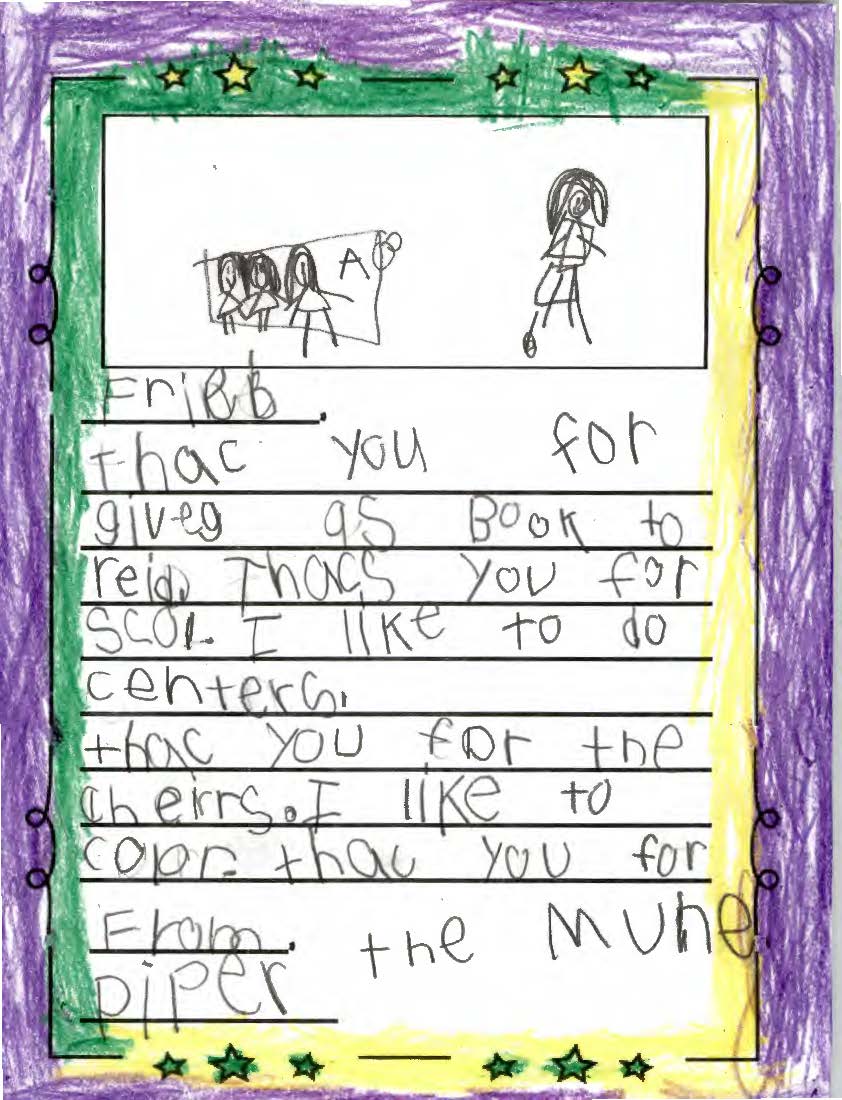 A
FriEb.
thac you for
giveg as Book to
reid. Thacs you for
Scol. I like to do
centers.
thac you for the
cheirrs. I like to
color. thac you for
the Mune
From.
piper